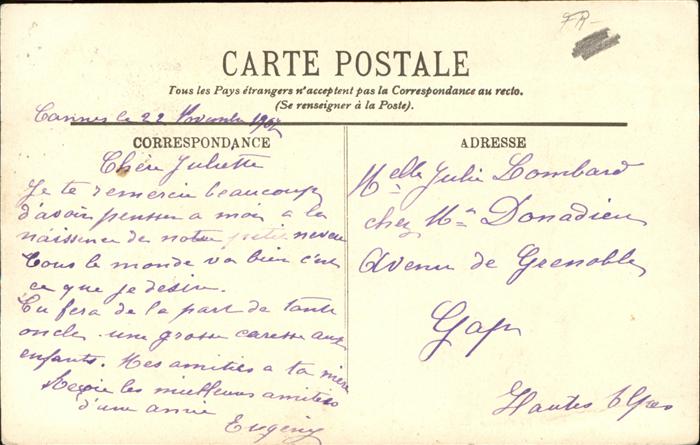 FR-
CARTE POSTALE
Tous les Pays étrangers n'acceptent pas la Correspondance au recto.
(Se renseigner à la Poste).
Cannes le 22 Novembre
CORRESPONDANCE
Chère Juliette
Je te remercie beaucoup
d'avoir pensser a moi a la
naissence de notre petit neveu
tous le monde va bien c'est
ce que je désire.
Tu fera de la part de tante
oncle une grosse caresse aux
enfants. Mes amitiés a ta mère
Reçoie les meilleures amitiées
d'une amie
Eugény
ADRESSE
Melle Julie Lombard
chez Mr Donadieu
Avenue de Grenoble
Gap
Hautes Alpes